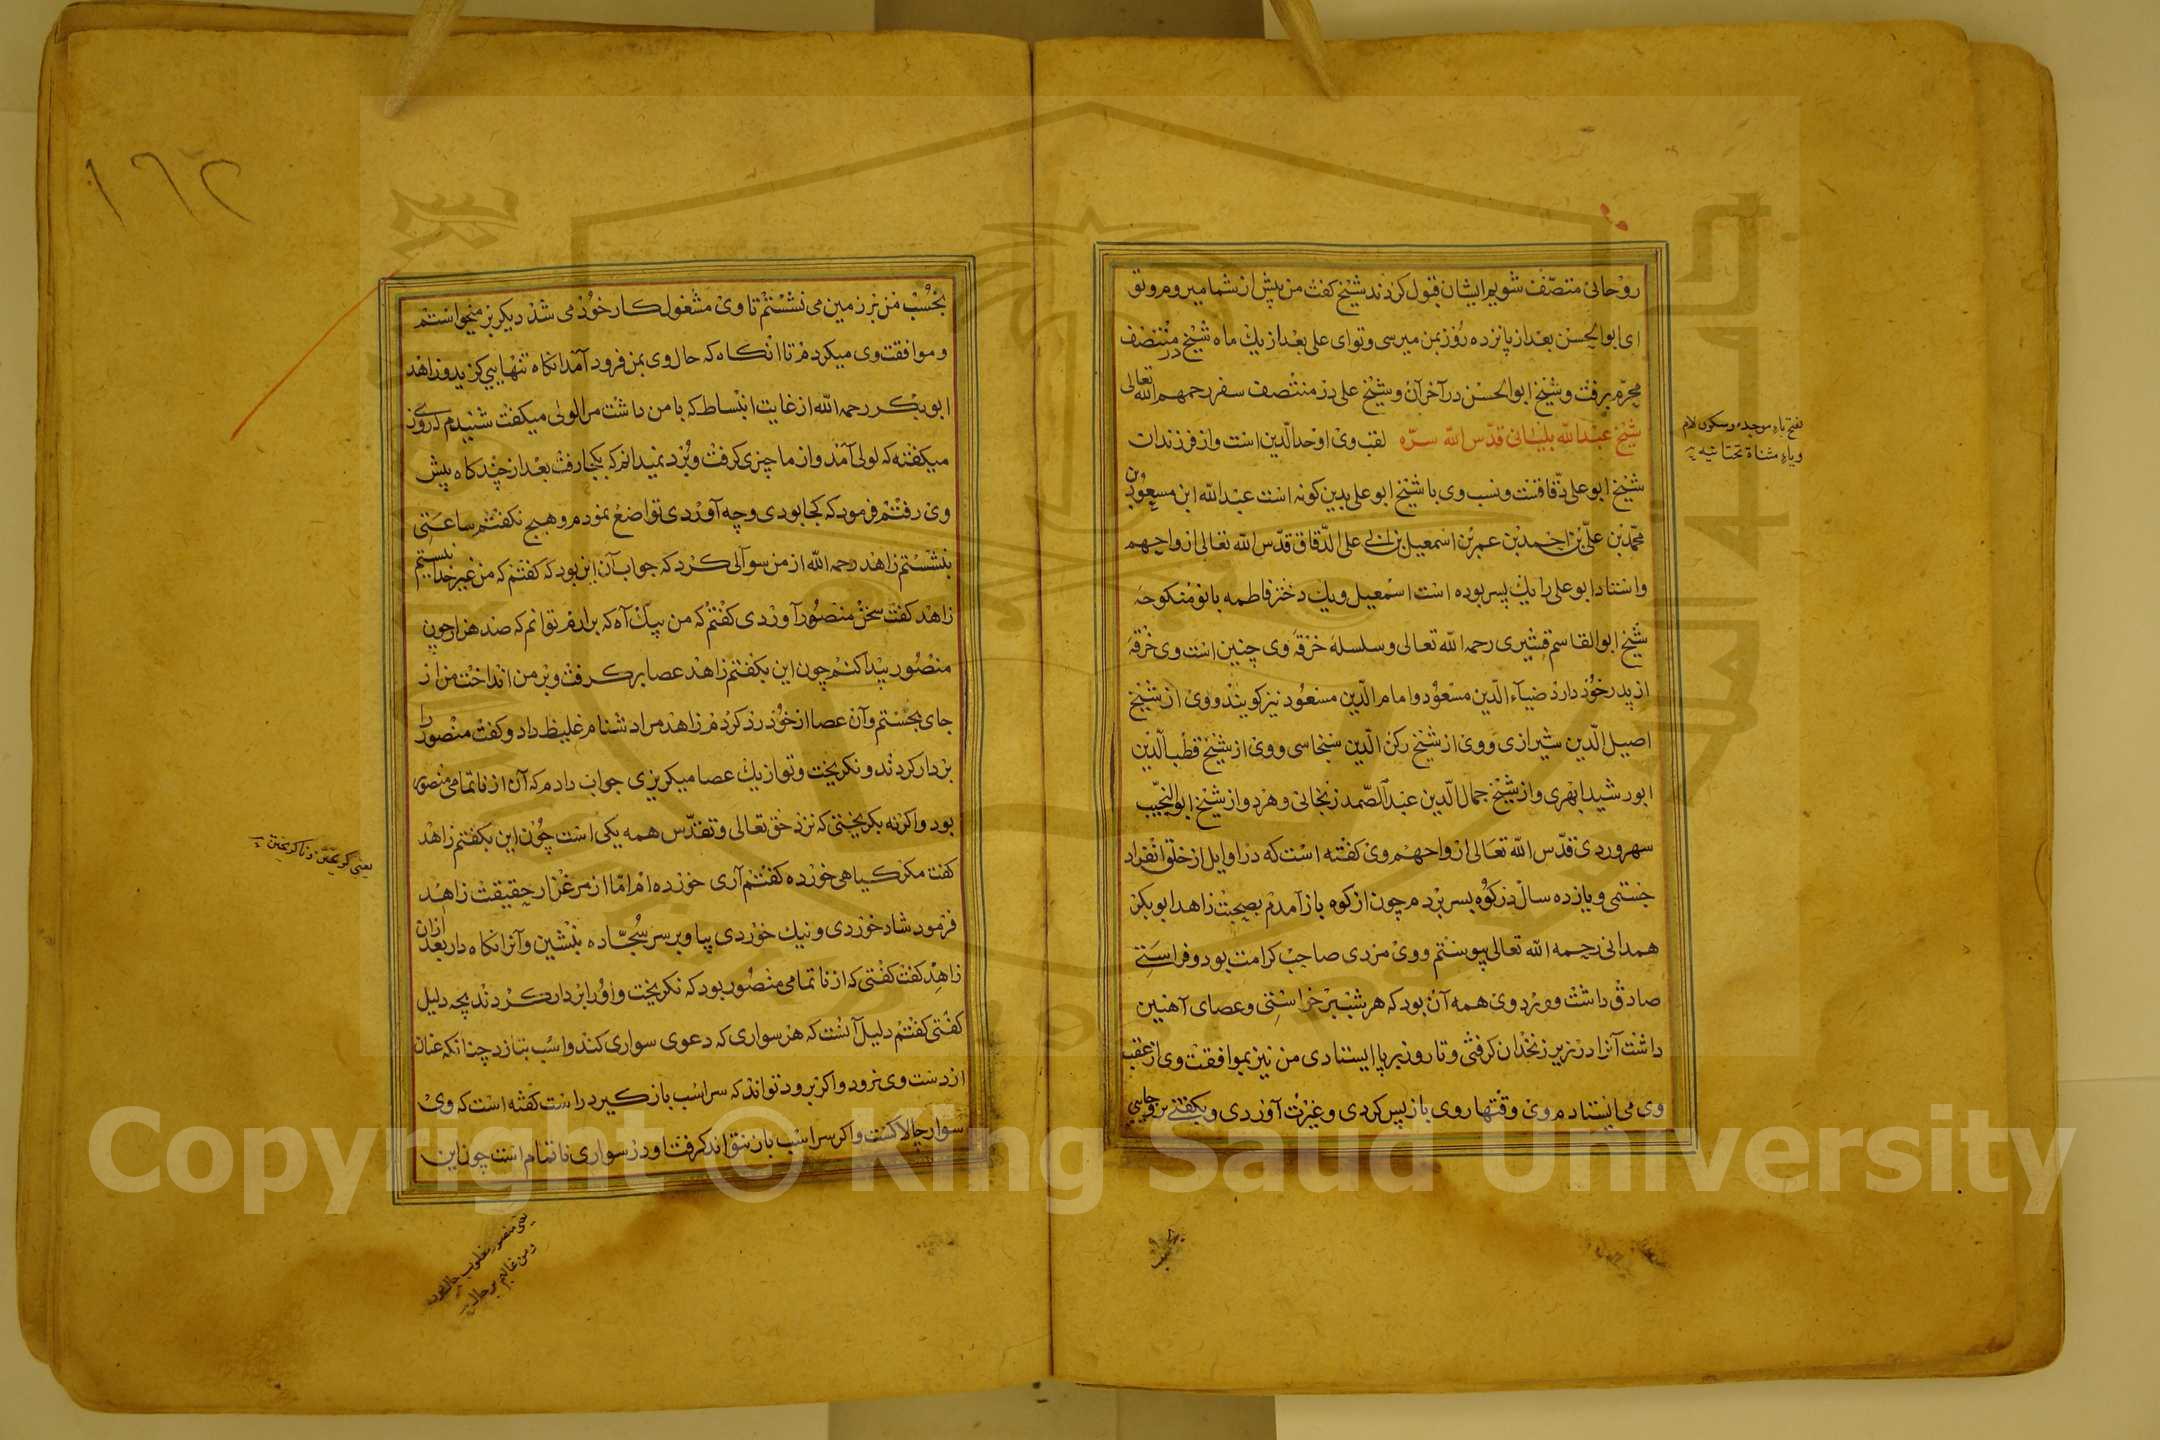 روحانی متصّف شویم ایشان قبول کردند شیخ کفت من پیش از شما میروم و تو
ای ابو الحسن بعد از پانزده روز بمن میرسی و تو ای علی بعد از یک ماه شیخ در منتصف
محرّم برفت و شیخ ابو الحسن در آخر آن و شیخ علی در منتصف سفر رحمهم الله تعالی
شیخ عبد الله بلیانی قدّس الله سرّه لقب وی اوحد الدین است و از فرزندان
شیخ ابو علی دقاقست و نسب وی با شیخ ابو علی بدین کونه است عبد الله ابن مسعود بن
محمّد بن علی بن احمد بن عمر بن اسمعیل بن ابی علی الدّقاق قدّس الله تعالی ارواحهم
و استاد ابو علی را یک پسر بوده است اسمعیل و یک دختر فاطمه بانو منکوحه
شیخ ابو القاسم قشیری رحمه الله تعالی و سلسله خرقه وی چنین است وی خرقه
از پدر خود دارد ضیاء الدّین مسعود و امام الدّین مسعود نیز کویند و وی از شیخ
اصیل الدّین شیرازی و وی از شیخ رکن الدّین سنجاسی و وی از شیخ قطب الدّین
ابو رشید ابهری و از شیخ جمال الدّین عبد الصّمد زنجانی و هر دو از شیخ ابو النجیب
سهروردی قدّس الله تعالی ارواحهم وی کفته است که در اوایل از خلق انفراد
جستمی و یازده سال در کوه بسر بردم چون از کوه باز آمدم بصحبت زاهد ابو بکر
همدانی رحمه الله تعالی پیوستم و وی مردی صاحب کرامت بود و فراستی
صادق داشت و ورد وی همه آن بود که هر شب برخاستی و عصای آهنین
داشت آنرا در زیر زنخدان کرفتی و تا روز بر پا ایستادی من نیز بموافقت وی از عقب
وی می ایستادم وی وقتها روی باز پس کردی و غیرت آوردی و بکفتی برو جایی
بفتح باء موحده و سکون لام
و یاء مثناة تحتانیه
بخسب من بر زمین می نشستم تا وی مشغول کار خود می شد دیکر بر میخواستم
و موافقت وی میکردم تا انکاه که حال وی بمن فرود آمد انکاه تنهایی کزیدم و زاهد
ابو بکر رحمه الله از غایت انبساط که با من داشت مرا لولی میکفت شنیدم که روزی
میکفته که لولی آمد و از ما چیزی کرفت و ببرد نمیدانم که بکجا رفت بعد از چند کاه پیش
وی رفتم فرمود که کجا بودی و چه آوردی تواضع نمودم و هیچ نکفتم ساعتی
بنشستم زاهد رحمه الله از من سوالی کرد که جواب آن این بود که کفتم که من غیر خدا نیستم
زاهد کفت سخن منصور آوردی کفتم که من بیک آه که برارم توانم که صد هزار چون
منصور پیدا کنم چون این بکفتم زاهد عصا بر کرفت و بر من انداخت من از
جای بجستم و آن عصا از خود رد کردم زاهد مرا دشنام غلیظ داد و کفت منصور را
بر دار کردند و نکریخت و تو از یک عصا میکریزی جواب دادم که آن از ناتمامی منصور
بود و اکر نه بکریختی که نزد حق تعالی و تقدّس همه یکی است چون این بکفتم زاهد
کفت مکر کیاهی خورده کفتم آری خورده ام امّا از مرغزار حقیقت زاهد
فرمود شاد خوردی و نیک خوردی بیا و بر سر سجّاده بنشین و آنرا نکاه دار بعد ازان
زاهد کفت کفتی که از ناتمامی منصور بود که نکریخت و او را بر دار کردند بچه دلیل
کفتی کفتم دلیل آنست که هر سواری که دعوی سواری کند و اسب بتازد چنانکه عنان
از دست وی نرود و اکر برود تواند که سر اسب باز کیرد راست کفته است که وی
سوار چالاکست و اکر سر اسب باز نتواند کرفت او در سواری ناتمام است چون این
یعنی کریختن و ناکریختن
یعنی منصور مغلوب حال بود
و من غالبم بر حال